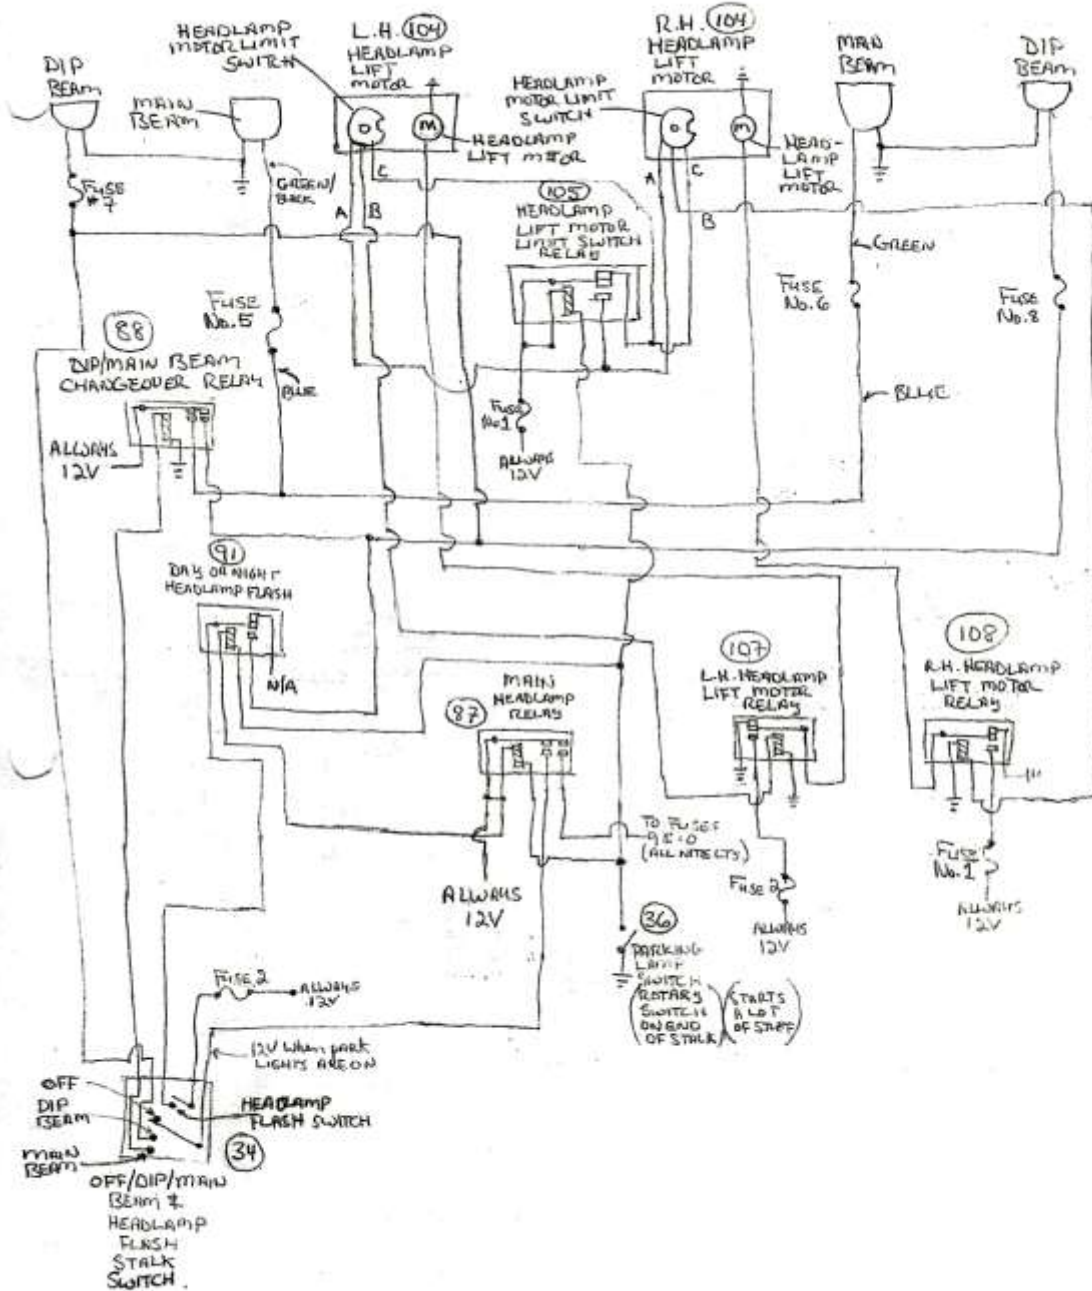 HEADLAMP
MOTOR LIMIT
SWITCH
L.H. 104
HEADLAMP
LIFT
MOTOR
R.H. 104
HEADLAMP
LIFT
MOTOR
MAIN
BEAM
DIP
BEAM
DIP
BEAM
MAIN
BEAM
HEADLAMP
MOTOR LIMIT
SWITCH
M
HEADLAMP
LIFT MOTOR
M
HEAD-
LAMP
LIFT
MOTOR
FUSE
#7
GREEN/
BLACK
A
B
C
105
HEADLAMP
LIFT MOTOR
LIMIT SWITCH
RELAY
A
C
B
GREEN
FUSE
No.5
FUSE
No.6
FUSE
No.8
88
DIP/MAIN BEAM
CHANGEOVER RELAY
BLUE
BLUE
FUSE
No.1
ALLWAYS
12V
ALLWAYS
12V
91
DAY OR NIGHT
HEADLAMP FLASH
N/A
MAIN
HEADLAMP
RELAY
87
107
L.H. HEADLAMP
LIFT MOTOR
RELAY
108
R.H. HEADLAMP
LIFT MOTOR
RELAY
TO FUSES
(ALL NITE LTS)
ALLWAYS
12V
FUSE 2
ALLWAYS
12V
FUSE
No.1
ALLWAYS
12V
36
PARKING
LAMP
SWITCH
(ROTARY
SWITCH
ON END
OF STALK)
(STARTS
A LOT
OF STUFF)
FUSE 2
ALLWAYS
12V
12V When park
LIGHTS ARE ON
OFF
DIP
BEAM
MAIN
BEAM
HEADLAMP
FLASH SWITCH
34
OFF/DIP/MAIN
BEAM &
HEADLAMP
FLASH
STALK
SWITCH.